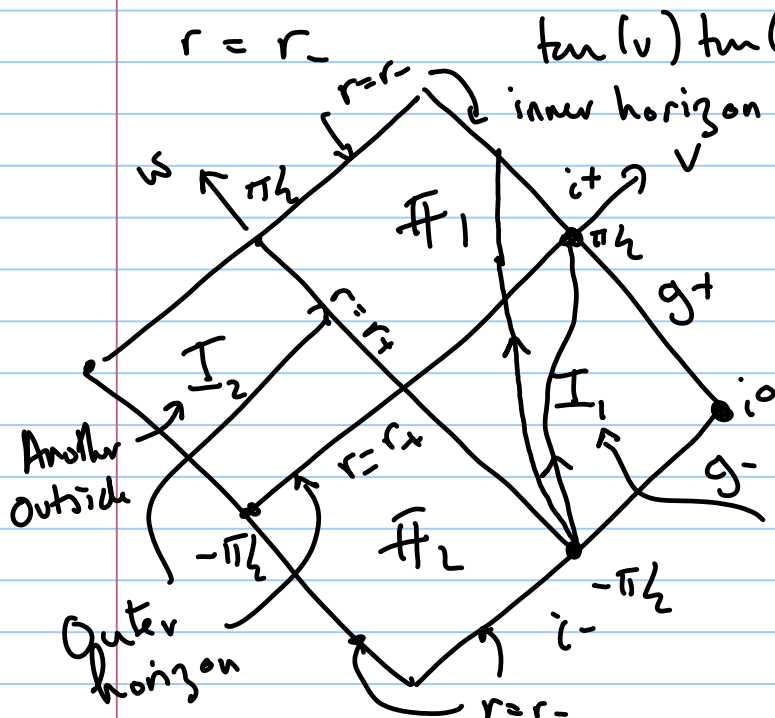 r = r_-
tan(v) tan(
r=r-
inner horizon
w
π/2
i+
V
II_1
π/2
g+
r=r+
I_2
I_1
i^0
Another
outside
r=r+
g-
-π/2
II_2
-π/2
Outer
horizon
i-
r=r-